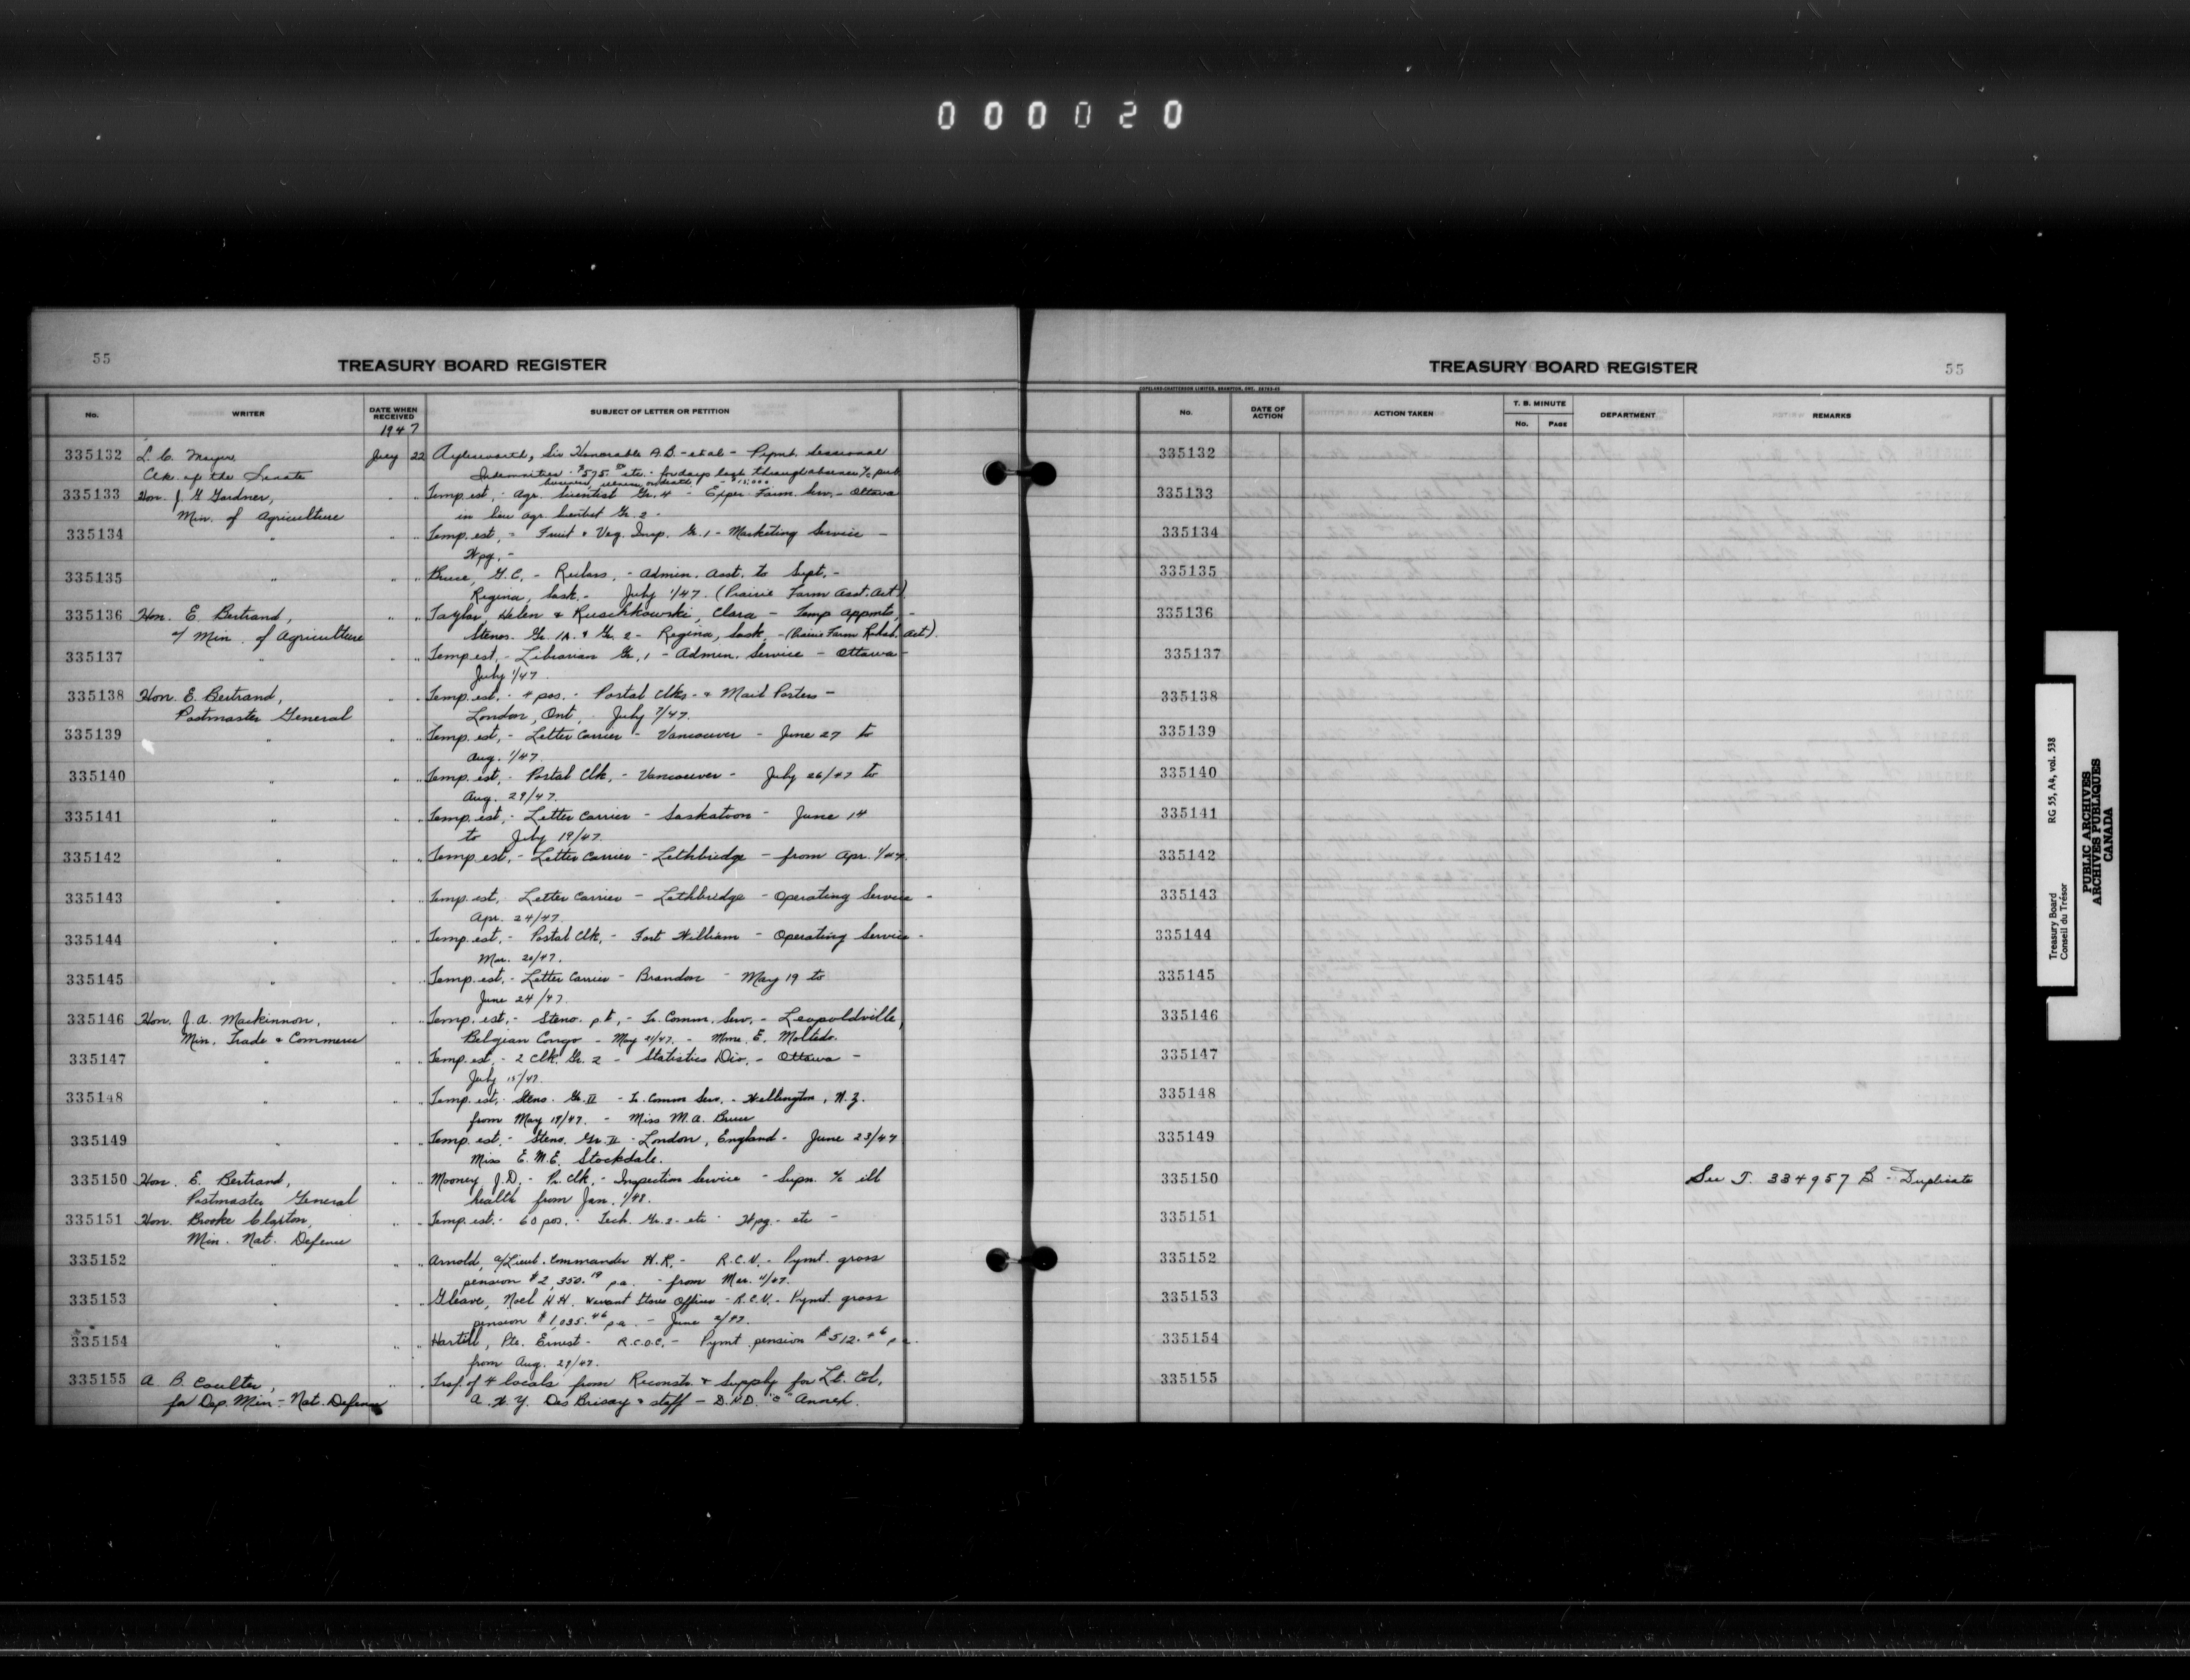 000020
55
TREASURY BOARD REGISTER
No. WRITER DATE WHEN RECEIVED SUBJECT OF LETTER OR PETITION
1947
335132 L. C. Moyer, July 22 Aylesworth, Sir Honorable A.B. - et al - Pymt. Sessional
Clk. of the Senate Indemnities - $575.00 etc. - for days lost through absence % pub.
business, illness or death - $15,000
335133 Hon. J. G. Gardner, " " Temp. est, - Agr. Scientist Gr. 4 - Exper. Farm. Serv. - Ottawa
Min. of Agriculture in lieu Agr. Scientist Gr. 2 -
335134 " " " Temp. est, - Fruit & Veg. Insp. Gr. 1 - Marketing Service -
Wpg. -
335135 " " " Bruce, G.C. - Reclass, - Admin. Asst. to Supt, -
Regina, Sask. - July 1/47. (Prairie Farm Asst. Act)
335136 Hon. E. Bertrand, " " Taylor, Helen & Ruschkowski, Clara - Temp appmts, -
a/ Min. of Agriculture Stenos. Gr. 1A. & Gr. 2 - Regina, Sask. - (Prairie Farm Rehab. Act).
335137 " " " Temp est, - Librarian Gr. 1 - Admin. Service - Ottawa -
July 1/47.
335138 Hon. E. Bertrand, " " Temp. est. - 4 pos. - Postal Clks. & Mail Porters -
Postmaster General London, Ont, July 7/47.
335139 " " " Temp. est, - Letter Carrier - Vancouver - June 27 to
Aug. 1/47.
335140 " " " Temp. est, - Postal Clk, - Vancouver - July 26/47 to
Aug. 29/47.
335141 " " " Temp. est, - Letter Carrier - Saskatoon - June 14
to July 19/47.
335142 " " " Temp est, - Letter Carrier - Lethbridge - from Apr. 1/47.
335143 " " " Temp. est, Letter Carrier - Lethbridge - Operating Service -
Apr. 24/47.
335144 " " " Temp. est, - Postal Clk, - Fort William - Operating Service -
Mar. 20/47.
335145 " " " Temp. est, - Letter Carrier - Brandon - May 19 to
June 24/47.
335146 Hon. J. A. Mackinnon, " " Temp. est, - Steno. pt, - Tr. Comm. Serv. - Leopoldville,
Min. Trade & Commerce Belgian Congo - May 21/47. - Mme. E. Moltedo.
335147 " " " Temp. est, - 2 Clk. Gr. 2 - Statistics Div. - Ottawa -
July 15/47.
335148 " " " Temp. est, - Steno. Gr. II - Tr. Comm Serv. - Wellington, N.Z.
from May 19/47. - Miss M. A. Bruce
335149 " " " Temp. est. - Steno. Gr. II - London, England - June 23/47
Miss E. M. E. Stockdale.
335150 Hon. E. Bertrand, " " Mooney J. D. - Pr. Clk. - Inspection Service - Supn. % ill
Postmaster General health from Jan. 1/48.
335151 Hon. Brooke Claxton, " " Temp. est. - 60 pos. - Tech. Gr. 2 - etc - Wpg. - etc -
Min. Nat. Defence
335152 " " " Arnold, a/Lieut. Commander H. R. - R.C.N. - Pymt. gross
pension $2,350.19 p.a. - from Mar. 11/47.
335153 " " " Gleave, Noel H.H. Warrant Stores Officer - R.C.N. - Pymt. gross
pension $1,035.46 p.a. - June 2/47.
335154 " " " Hartell, Pte. Ernest - R.C.O.C. - Pymt. pension $512.46 p.a.
from Aug. 29/47.
335155 A. B. Coulter, " " Trsf. of 4 locals from Reconstr. & Supply for Lt. Col.
for Dep. Min. - Nat. Defence A. W. Y. Des Brisay & staff - D.N.D. "C" Annex.
TREASURY BOARD REGISTER
55
COPELAND-CHATTERSON LIMITED, BRAMPTON, ONT.
No. DATE OF ACTION ACTION TAKEN T. B. MINUTE No. PAGE DEPARTMENT REMARKS
335132
335133
335134
335135
335136
335137
335138
335139
335140
335141
335142
335143
335144
335145
335146
335147
335148
335149
335150 See T. 334957 B - Duplicate
335151
335152
335153
335154
335155
Treasury Board RG 55, A4, vol. 538
Conseil du Trésor
PUBLIC ARCHIVES
ARCHIVES PUBLIQUES
CANADA